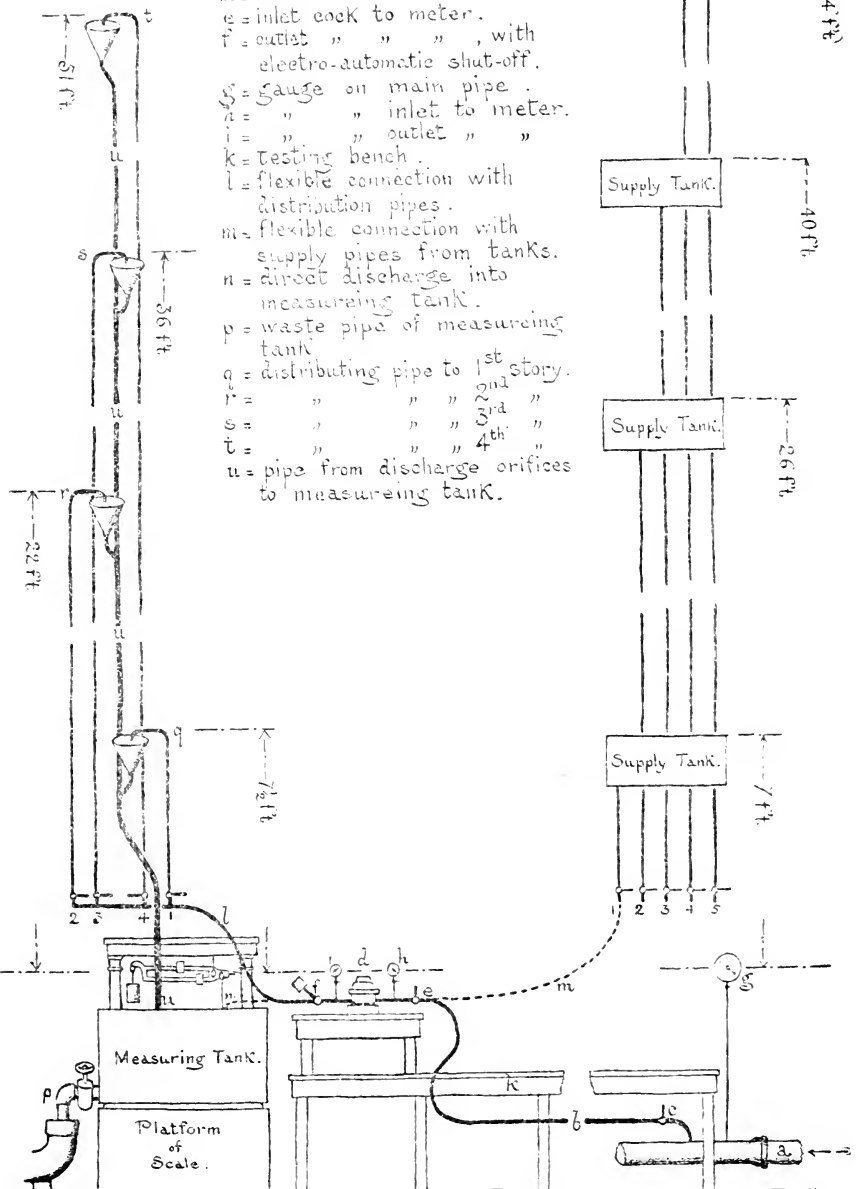 e = inlet cock to meter.
f = outlet " " " , with
electro-automatic shut-off.
g = gauge on main pipe.
h = " " inlet to meter.
i = " " outlet " "
k = testing bench.
l = flexible connection with
distribution pipes.
m = flexible connection with
supply pipes from tanks.
n = direct discharge into
measureing tank.
p = waste pipe of measureing
tank
q = distributing pipe to 1st story.
r = " " " 2nd "
s = " " " 3rd "
t = " " " 4th "
u = pipe from discharge orifices
to measureing tank.
t
51 ft.
u
s
36 ft.
u
r
22 ft.
u
q
7½ ft.
2 3 4 1
l
Supply Tank.
40 ft.
Supply Tank.
26 ft.
Supply Tank.
7 ft.
1 2 3 4 5
f i d h e
m
g
n
u
Measuring Tank.
p
Platform
of
Scale.
k
b
c
a